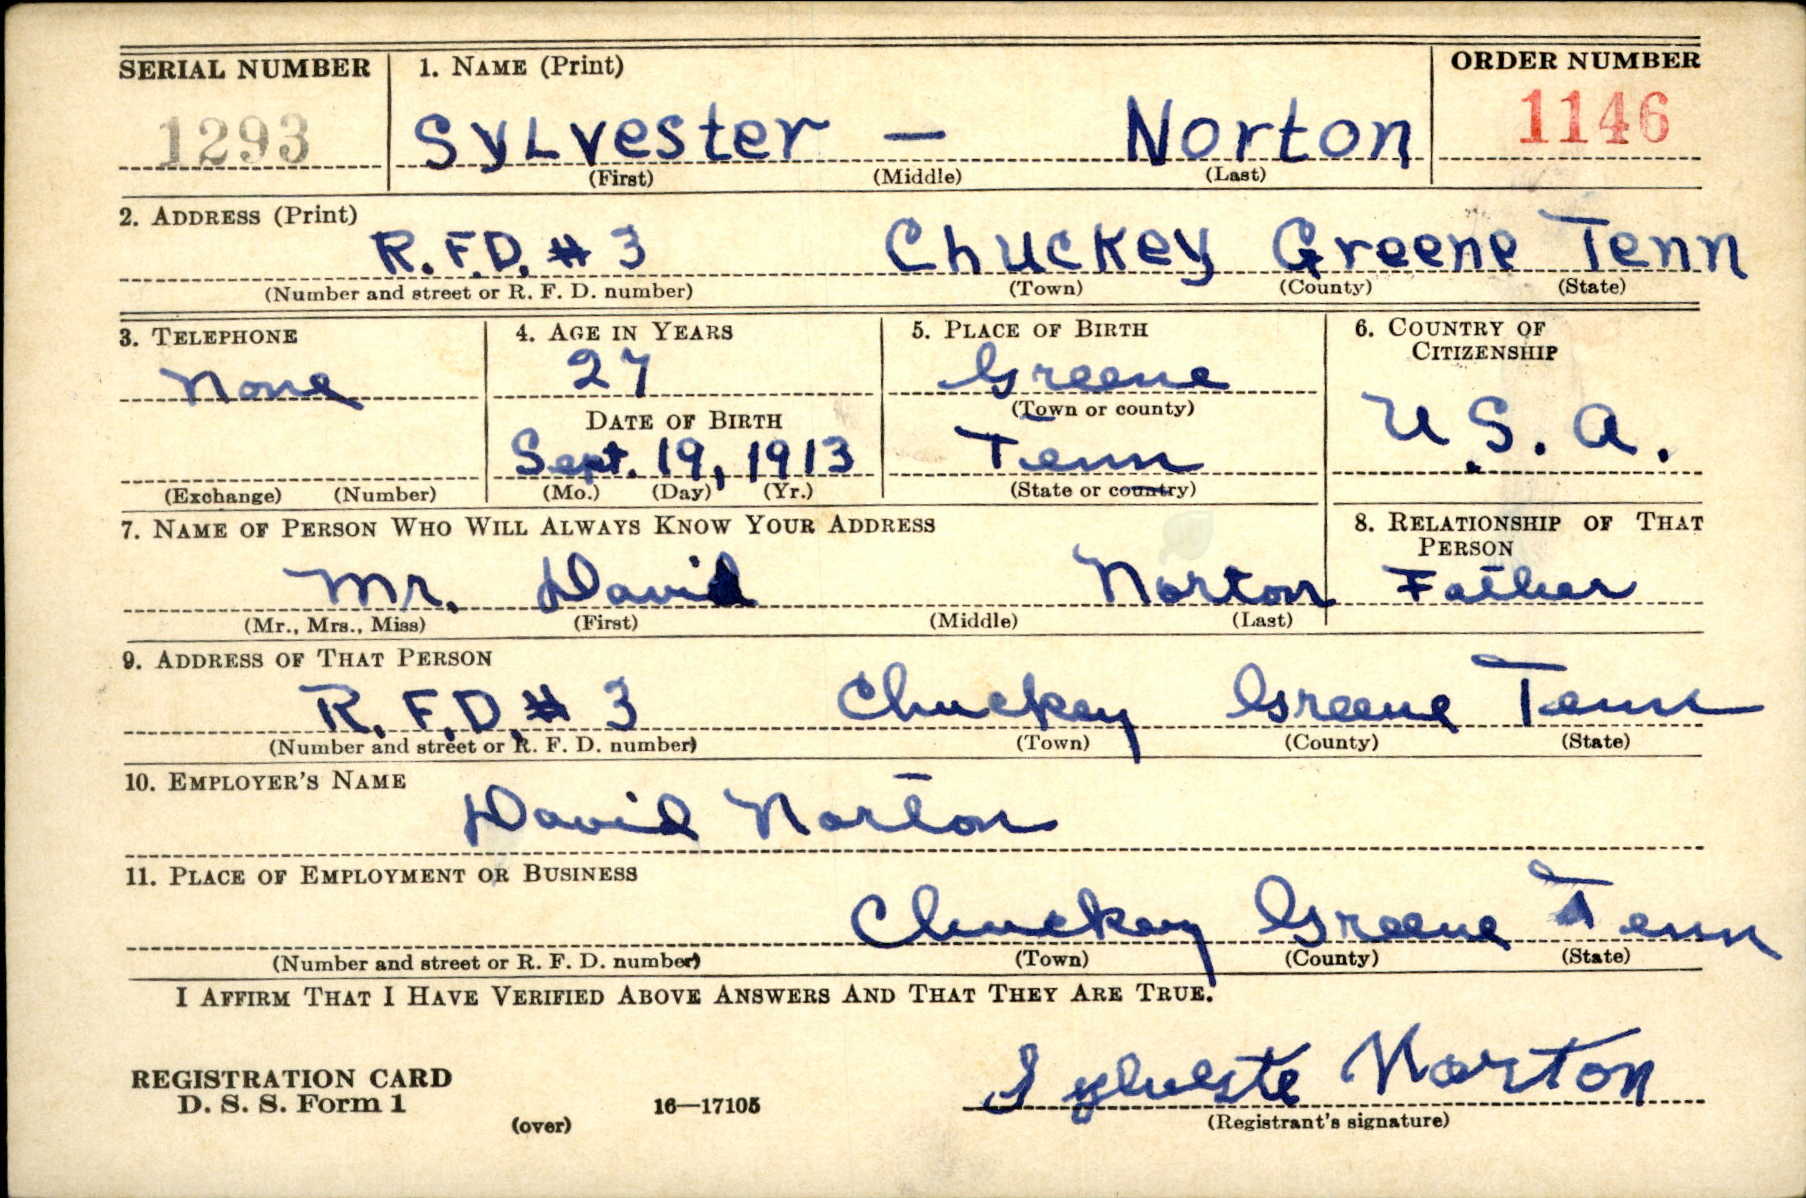 SERIAL NUMBER 1. NAME (Print) ORDER NUMBER
1293 Sylvester — Norton 1146
(First) (Middle) (Last)
2. ADDRESS (Print)
R.F.D. # 3 Chuckey Greene Tenn
(Number and street or R. F. D. number) (Town) (County) (State)
3. TELEPHONE 4. AGE IN YEARS 5. PLACE OF BIRTH 6. COUNTRY OF CITIZENSHIP
None 27 Greene
(Town or county)
DATE OF BIRTH U.S.A.
Sept. 19, 1913 Tenn
(Exchange) (Number) (Mo.) (Day) (Yr.) (State or country)
7. NAME OF PERSON WHO WILL ALWAYS KNOW YOUR ADDRESS 8. RELATIONSHIP OF THAT PERSON
Mr. David Norton Father
(Mr., Mrs., Miss) (First) (Middle) (Last)
9. ADDRESS OF THAT PERSON
R.F.D. # 3 Chuckey Greene Tenn
(Number and street or R. F. D. number) (Town) (County) (State)
10. EMPLOYER'S NAME
David Norton
11. PLACE OF EMPLOYMENT OR BUSINESS
Chuckey Greene Tenn
(Number and street or R. F. D. number) (Town) (County) (State)
I AFFIRM THAT I HAVE VERIFIED ABOVE ANSWERS AND THAT THEY ARE TRUE.
REGISTRATION CARD
D. S. S. Form 1 16—17105 Sylveste Norton
(over) (Registrant's signature)